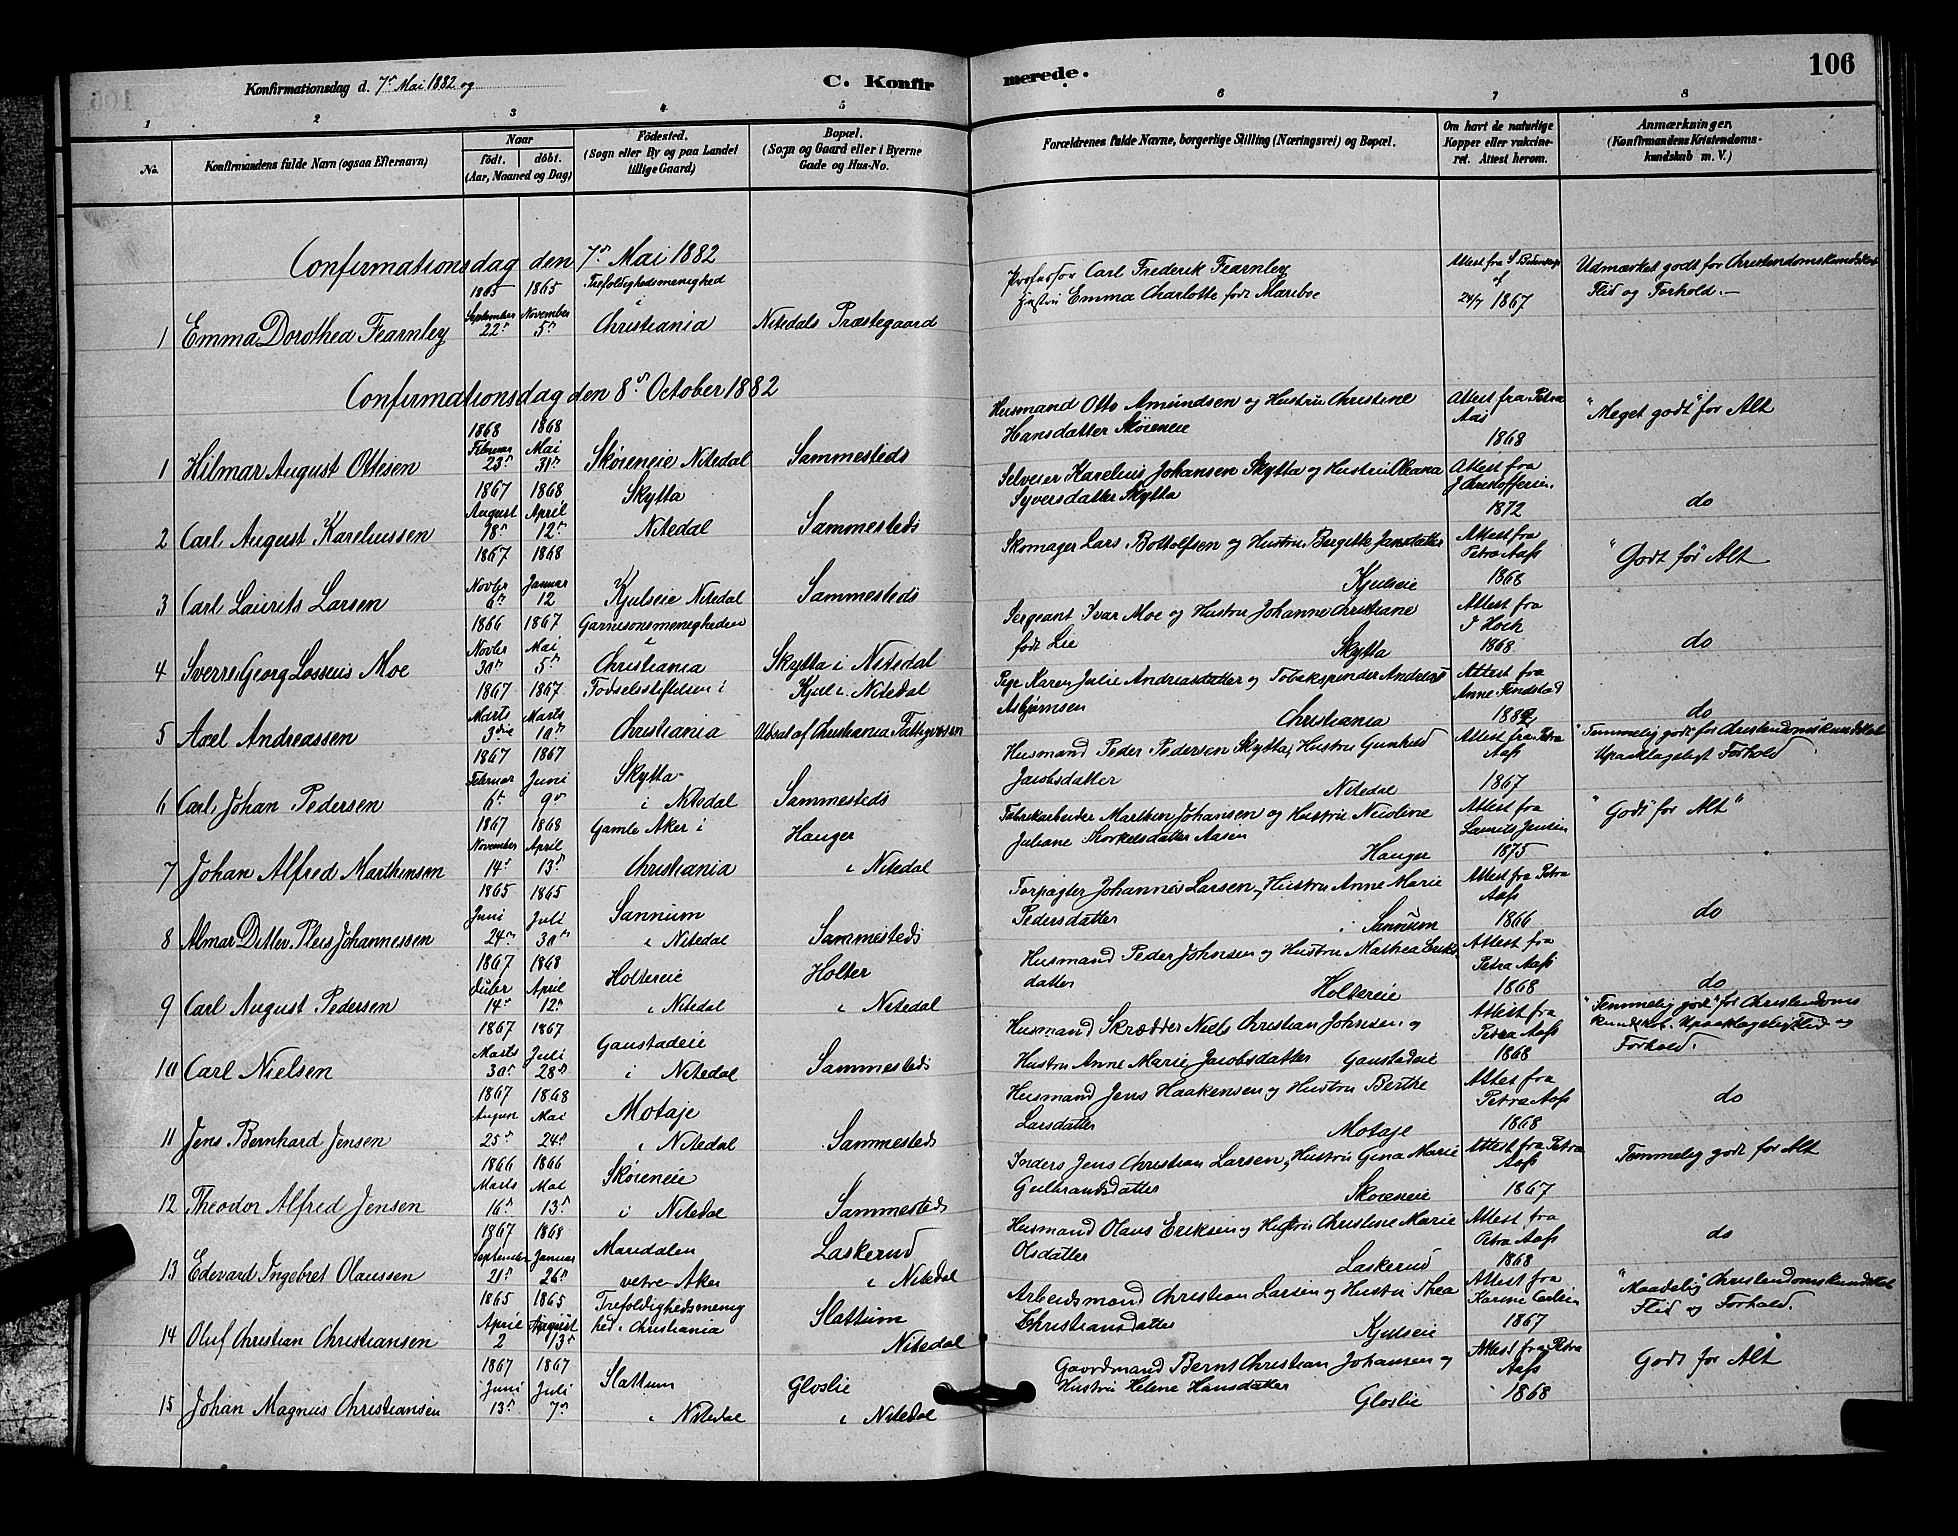 106
Konfirmationsdag d. 7de Mai 1882 og
C. Konfirmerede.
1 2 3 4 5 6 7 8
No.
Konfirmandens fulde Navn (ogsaa Efternavn)
Naar
födt. döbt.
(Aar, Maaned og Dag)
Födested.
(Sogn eller By og paa Landet
tillige Gaard)
Bopæl.
(Sogn og Gaard eller i Byerne
Gade og Hus-No.
Forældrenes fulde Navne, borgerlige Stilling (Næringsvei) og Bopæl.
Om havt de naturlige
Kopper eller vakcine-
ret. Attest herom.
Anmærkninger
(Konfirmandens Kristendoms-
kundskab m. V.)
Confirmationsdag den 7de Mai 1882
1 Emma Dorothea Fearnley
1865 September 22de
1865 November 5te
Trefoldighedsmenighed
i
Christiania
Nitedals Præstegaard
Professor Carl Frederik Fearnley
Hustru Emma Charlotte født Mariboe
Attest fra
24/7 1867
Udmærket godt for Christendomskundskab
Flid og Forhold.
Confirmationsdag den 8de October 1882
1 Hilmar August Ottesen
1868 Februar 23de
1868 Mai 31te
Skøreneie Nitedal
Sammesteds
Husmand Otto Amundsen og Hustru Christine
Hansdatter Skøreneie
Attest fra Petra
Aas
1868
"Meget godt" for Alt
2 Carl August Kareliussen
1867 August 18de
1868 April 12te
Skytta
Nitedal
Sammesteds
Selveier Karelius Johansen Skytta og Hustru Oleana
Syversdatter Skytta
Attest fra
J Christoffersen
1872
do
3 Carl Laurits Larsen
1867 Novbr 6te
1868 Januar 12
Kjulseie Nitedal
Sammesteds
Skomager Lars Bottolfsen og Hustru Bergitte Jansdatter
Kjulseie
Attest fra
Petra Aass
1868
"Godt for Alt
4 Sverre Georg Lossius Moe
1866 Novbr 30te
1867 Mai 5te
Garnisonsmenigheden
i
Christiania
Skytta i Nitedal
Sergeant Ivar Moe og Hustru Johanne Christiane
født Lie
Skytta
Attest fra
J Hoch
1868
do
5 Axel Andreassen
1867 Marts 3die
1867 Marts 10de
Fødselsstiftelsen i
Christiania
Kjul i Nitedal
Udsat af Christiania Fattigvæsen
Pige Karen Julie Andreasdatter og Tobakspinder Andreas
Asbjørnsen
Christiania
Attest fra
Anne Tendstad
1882
do
6 Carl Johan Pedersen
1867 Februar 6te
1867 Juni 9de
Skytta
i Nitedal
Sammesteds
Husmand Peder Pedersen Skytta, Hustru Gunhild
Jacobsdatter
Nitedal
Attest fra Petra
Aass
1867
"Temmelig godt for Christendomskundskab
Upaaklageligt Forhold
7 Johan Alfred Marthinsen
1867 November 14de
1868 April 13de
Gamle Aker i
Christiania
Hauger
i Nitedal
Fabrikarbeider Marthin Johansen og Hustru Nicoline
Juliane Thorkelsdatter Aasen
Hauger
Attest fra
Laurits Jensen
1875
"Godt for Alt"
8 Almar Ditlev Pleis Johannessen
1865 Juni 24de
1865 Juli 30te
Sannum
i Nitedal
Sammesteds
Forpagter Johannes Larsen, Hustru Anne Marie
Pedersdatter
i Sannum
Attest fra Petra
Aass
1866
do
9 Carl August Pedersen
1867 Octbr 14de
1868 April 12te
Holtereie
i Nitedal
Holter
i Nitedal
Husmand Peder Johnsen og Hustru Mathea Eriks
datter
Holtereie
Attest fra
Petra Aass
1868
do
10 Carl Nielsen
1867 Marts 30te
1867 Juli 28de
Gaustadeie
i Nitedal
Sammesteds
Husmand Skrædder Niels Christian Johnsen og
Hustru Anne Marie Jacobsdatter Gaustadeie
Attest fra
Petra Aass
1868
"Temmelig godt" for Christendoms
kundskab. Upaaklagelig Flid og
Forhold.
11 Jens Bernhard Jensen
1867 August 25de
1868 Mai 24de
Motaje
i Nitedal
Sammesteds
Husmand Jens Haakensen og Hustru Berthe
Larsdatter
Motaje
Attest fra
Petra Aass
1868
do
12 Theodor Alfred Jensen
1866 Marts 16de
1866 Mai 13de
Skøreneie
i Nitedal
Sammesteds
Inders Jens Christian Larsen, Hustru Gina Marie
Gulbrandsdatter
Skøreneie
Attest fra Petra
Aass
1867
Temmelig godt for Alt
13 Edevard Ingebret Olaussen
1867 September 21de
1868 Januar 26de
Maridalen
vestre Aker
Laskerud
i Nitedal
Husmand Olaus Eriksen og Hustru Christine Marie
Olsdatter
Laskerud
Attest fra
Petra Aass
1868
do
14 Oluf Christian Christiansen
1865 April 2
1865 August 13de
Trefoldighedsmenig
hed i Christiania
Slattum
Nitedal
Arbeidsmand Christian Larsen og Hustru Thea
Christiansdatter
Kjulseie
Attest fra
Karine Carlsen
1867
"Maadelig" Christendomskundskab
Flid og Forhold.
15 Johan Magnus Christiansen
1867 Juni 13de
1867 Juli 7de
Slattum
i Nitedal
Gloslie
i Nitedal
Gaardmand Bernt Christian Johansen og
Hustru Helene Hansdatter
Gloslie
Attest fra Petra
Aass
1868
Godt for Alt